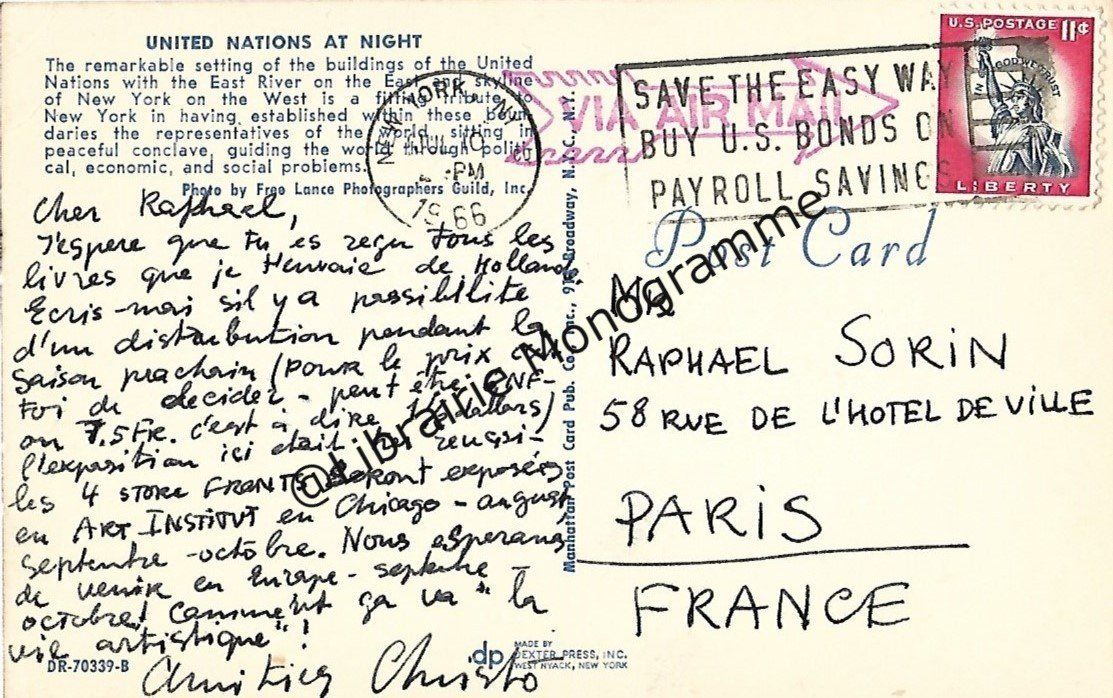 UNITED NATIONS AT NIGHT
The remarkable setting of the buildings of the United
Nations with the East River on the East and skyline
of New York on the West is a fitting tribute to
New York in having established within these boun-
daries the representatives of the world, sitting in
peaceful conclave, guiding the world through politi-
cal, economic, and social problems.
Photo by Free Lance Photographers Guild, Inc.
NEW YORK, N.Y.
JUL 10
PM
1966
VIA AIR MAIL
SAVE THE EASY WAY
BUY U.S. BONDS ON
PAYROLL SAVINGS
U.S. POSTAGE 11¢
IN GOD WE TRUST
LIBERTY
Post Card
Cher Raphael,
J'espere que tu es reçu tous les
livres que je t'envoie de Holland
Ecris-moi sil y a possibilite
d'un distribution pendant la
saison prochain (pour le prix
toi de decider - peut être
ou 7.5 FR. c'est à dire dollars)
l'exposition ici etait reussi-
les 4 STORE FRONTS seront exposées
en ART INSTITUT en Chicago - august,
septembre - octobre. Nous esperons
de venir en Europe - septembre
octobre! Comment ça va "la
vie artistique"!
Amitiés Christo
RAPHAEL SORIN
58 RUE DE L'HOTEL DE VILLE
PARIS
FRANCE
Manhattan Post Card Pub. Co. Inc., Broadway, N.Y.C., N.Y.
DR-70339-B
dp
MADE BY
DEXTER PRESS, INC.
WEST NYACK, NEW YORK
@Librairie Monogramme